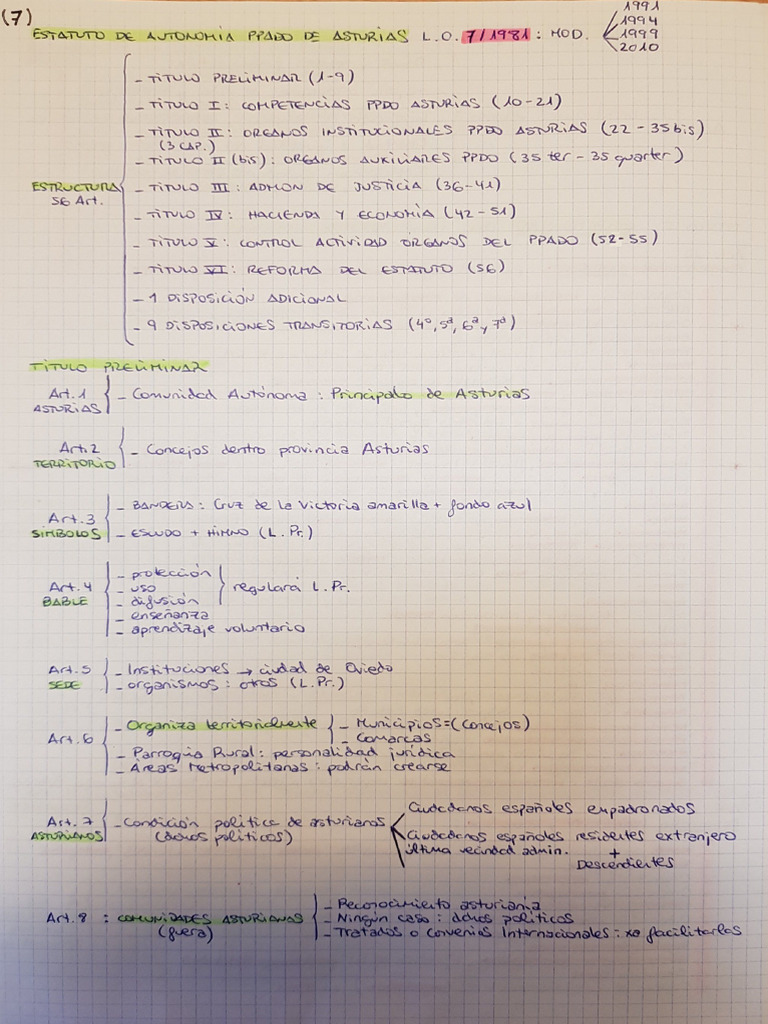 (7)
ESTATUTO DE AUTONOMÍA PPADO DE ASTURIAS L.O. 7/1981 : MOD.
1991
1994
1999
2010
ESTRUCTURA
56 Art.
- TÍTULO PRELIMINAR (1-9)
- TÍTULO I: COMPETENCIAS PPDO ASTURIAS (10-21)
- TÍTULO II: ÓRGANOS INSTITUCIONALES PPDO ASTURIAS (22 - 35 bis)
(3 CAP.)
- TÍTULO II (bis): ÓRGANOS AUXILIARES PPDO (35 ter - 35 quarter)
- TÍTULO III: ADMON DE JUSTICIA (36-41)
- TÍTULO IV: HACIENDA Y ECONOMÍA (42-51)
- TÍTULO V: CONTROL ACTIVIDAD ÓRGANOS DEL PPADO (52-55)
- TÍTULO VI: REFORMA DEL ESTATUTO (56)
- 1 DISPOSICIÓN ADICIONAL
- 9 DISPOSICIONES TRANSITORIAS (4ª, 5ª, 6ª y 7ª)
TÍTULO PRELIMINAR
Art. 1
ASTURIAS
- Comunidad Autónoma : Principado de Asturias
Art. 2
TERRITORIO
- Concejos dentro provincia Asturias
Art. 3
SÍMBOLOS
- BANDERA: Cruz de la Victoria amarilla + fondo azul
- ESCUDO + HIMNO (L. Pr.)
Art. 4
BABLE
- protección
- uso
- difusión
regulará L. Pr.
- enseñanza
- aprendizaje voluntario
Art. 5
SEDE
- Instituciones → ciudad de Oviedo
- organismos : otros (L. Pr.)
Art. 6
- Organiza territorialmente
- Municipios = (Concejos)
- Comarcas
- Parroquia Rural : personalidad jurídica
- Áreas Metropolitanas : podrán crearse
Art. 7
ASTURIANOS
- Condición política de asturianos
(dchos políticos)
Ciudadanos españoles empadronados
Ciudadanos españoles residentes extranjero
última vecindad admin.
+
Descendientes
Art. 8 : COMUNIDADES ASTURIANAS
(fuera)
- Reconocimiento asturianía
- Ningún caso : dchos políticos
- Tratados o Convenios Internacionales : xa facilitarlos